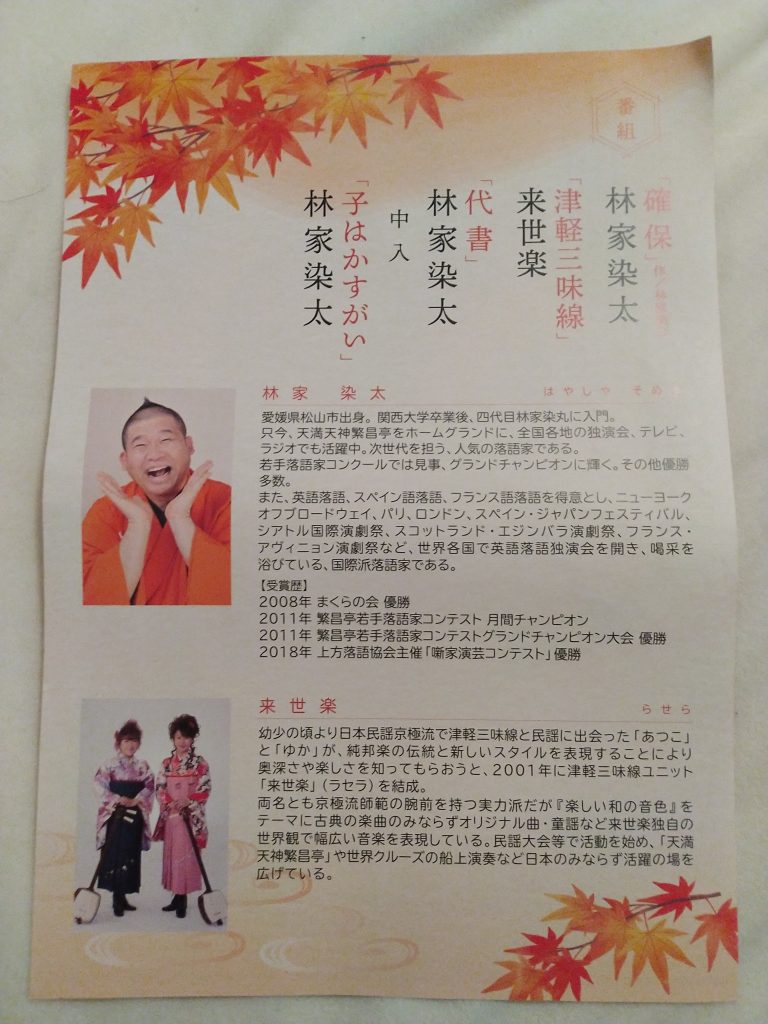 番組
「確保」作/林家染太
林家染太
「津軽三味線」
来世楽
「代書」
林家染太
中入
「子はかすがい」
林家染太
林家 染太
はやしや そめ
愛媛県松山市出身。関西大学卒業後、四代目林家染丸に入門。
只今、天満天神繁昌亭をホームグランドに、全国各地の独演会、テレビ、
ラジオでも活躍中。次世代を担う、人気の落語家である。
若手落語家コンクールでは見事、グランドチャンピオンに輝く。その他優勝
多数。
また、英語落語、スペイン語落語、フランス語落語を得意とし、ニューヨーク
オフブロードウェイ、パリ、ロンドン、スペイン・ジャパンフェスティバル、
シアトル国際演劇祭、スコットランド・エジンバラ演劇祭、フランス・
アヴィニョン演劇祭など、世界各国で英語落語独演会を開き、喝采を
浴びている、国際派落語家である。
【受賞歴】
2008年 まくらの会 優勝
2011年 繁昌亭若手落語家コンテスト 月間チャンピオン
2011年 繁昌亭若手落語家コンテストグランドチャンピオン大会 優勝
2018年 上方落語協会主催「噺家演芸コンテスト」優勝
来世楽
らせら
幼少の頃より日本民謡京極流で津軽三味線と民謡に出会った「あつこ」
と「ゆか」が、純邦楽の伝統と新しいスタイルを表現することにより
奥深さや楽しさを知ってもらおうと、2001年に津軽三味線ユニット
「来世楽」(ラセラ)を結成。
両名とも京極流師範の腕前を持つ実力派だが『楽しい和の音色』を
テーマに古典の楽曲のみならずオリジナル曲・童謡など来世楽独自の
世界観で幅広い音楽を表現している。民謡大会等で活動を始め、「天満
天神繁昌亭」や世界クルーズの船上演奏など日本のみならず活躍の場を
広げている。